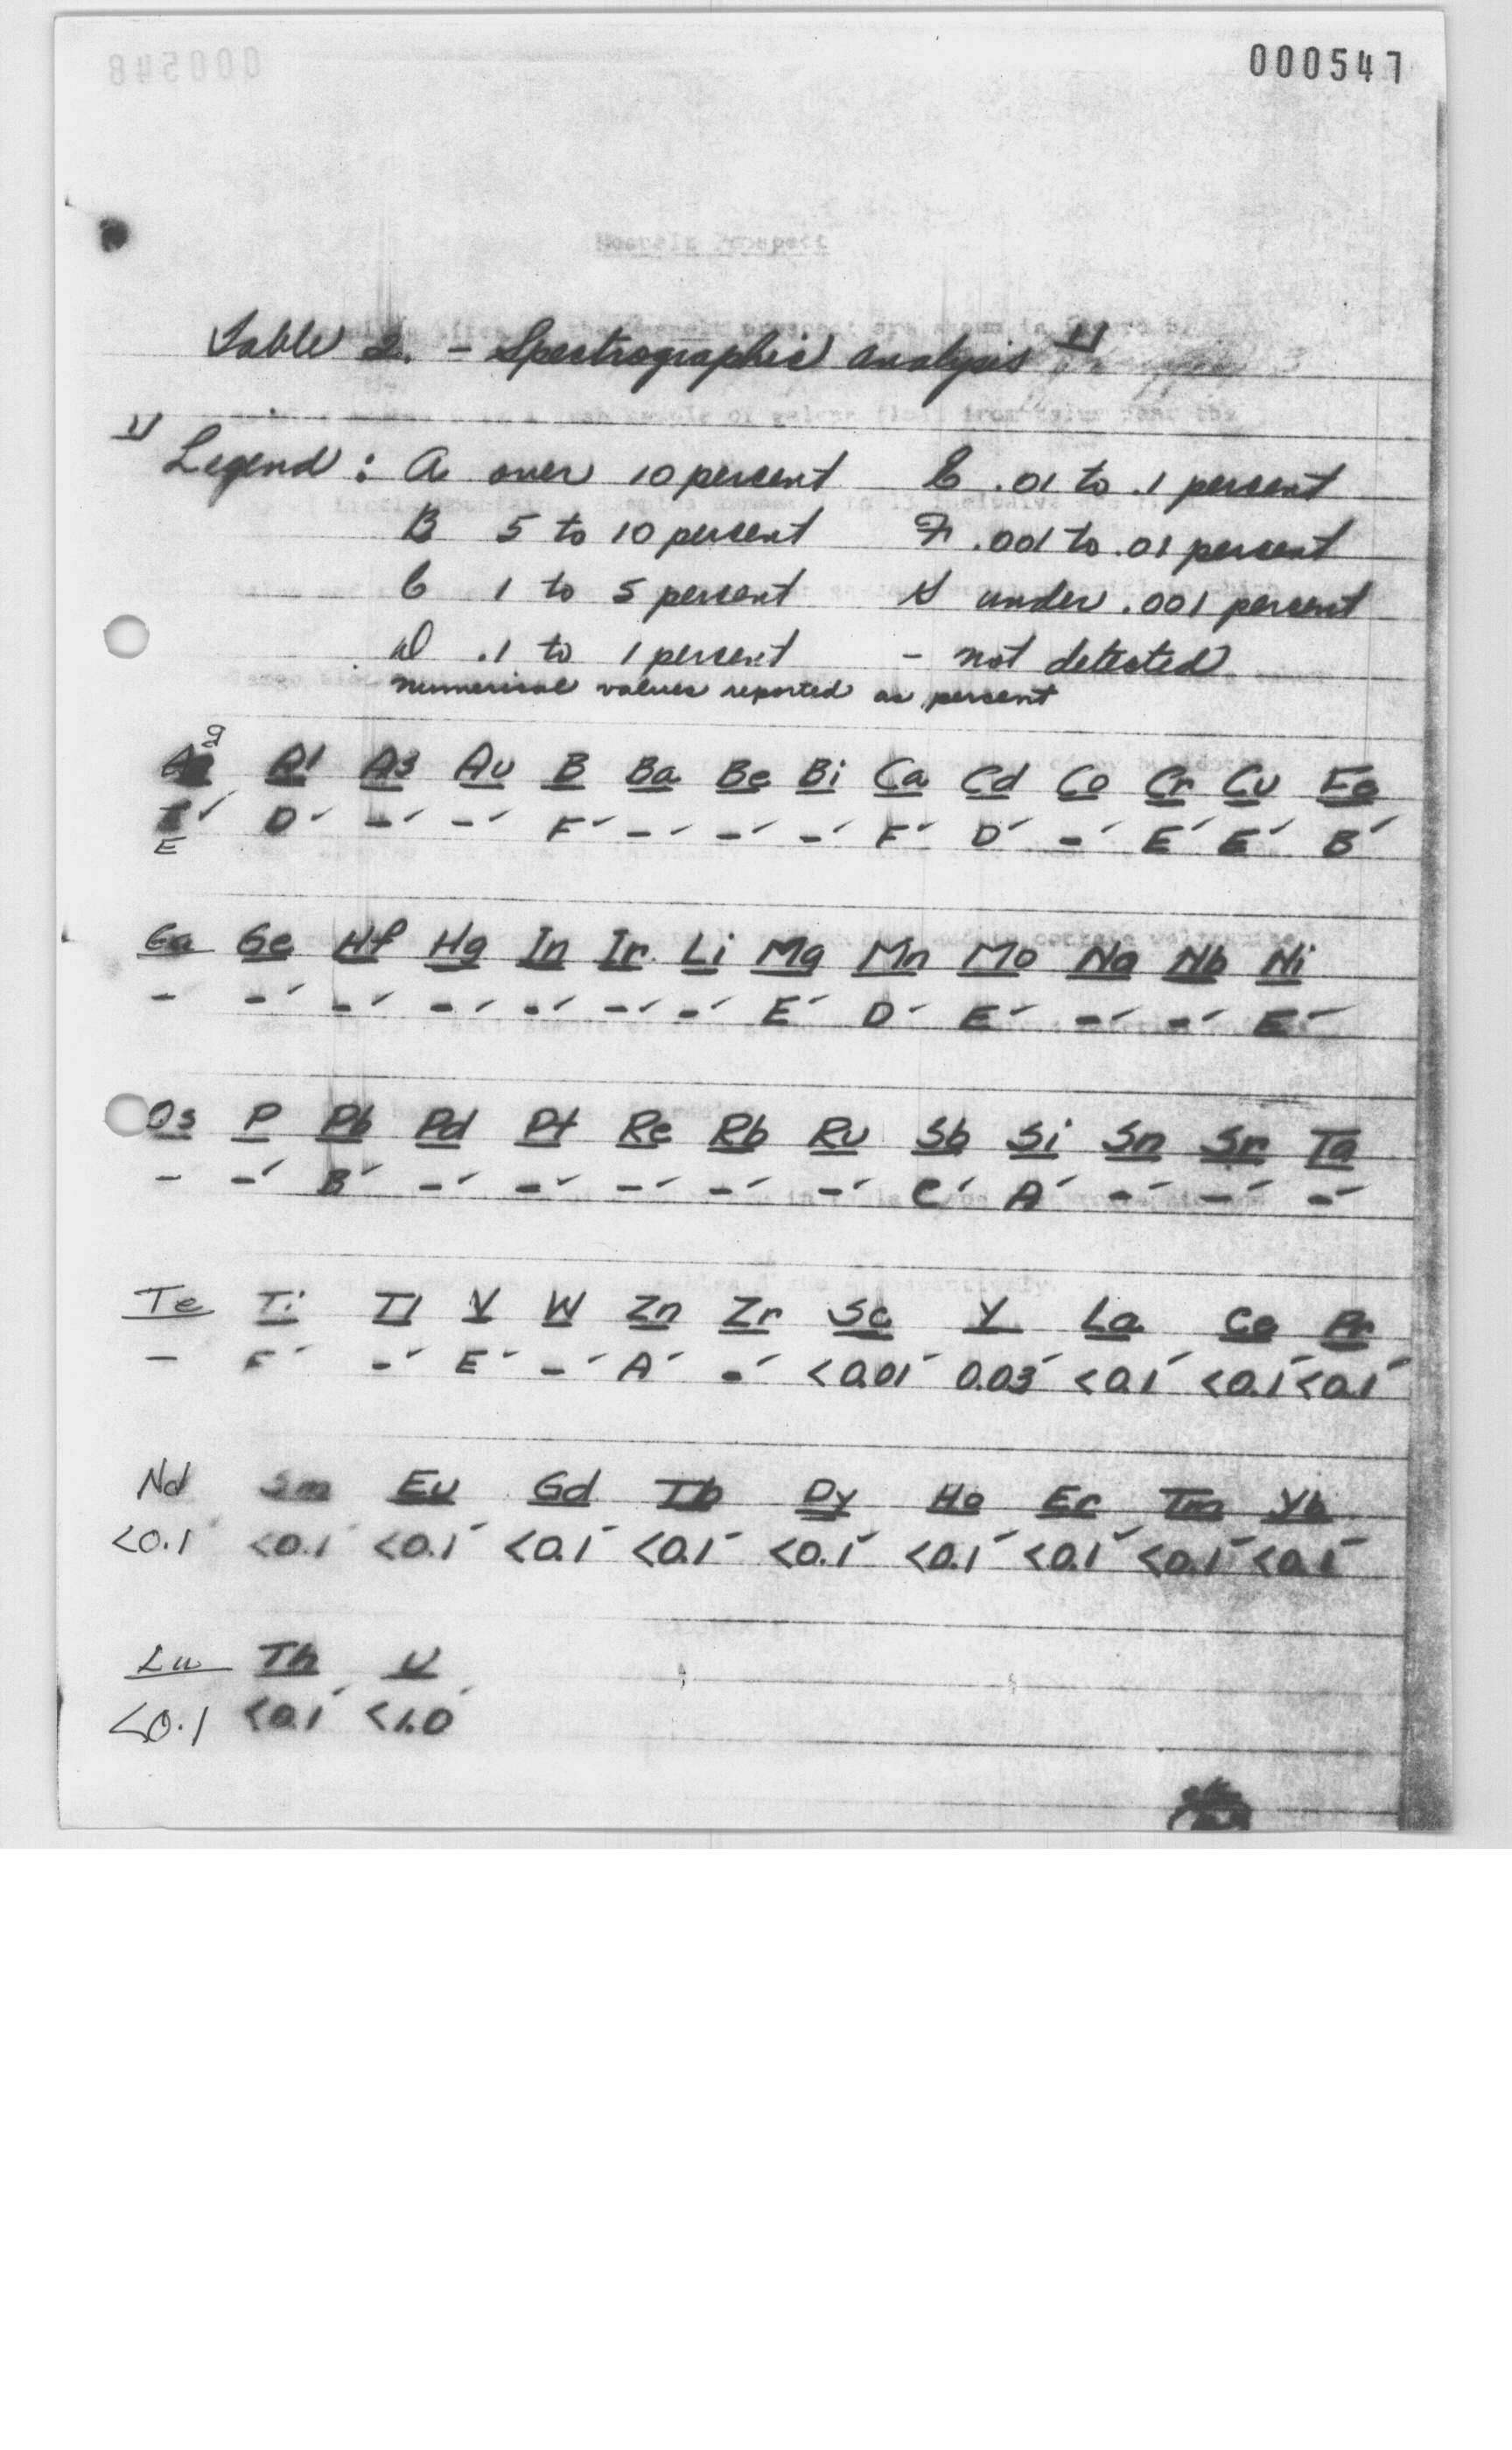 000547
000548
Table 2. - Spectrographic analysis 1/
1/
Legend: A over 10 percent E .01 to .1 percent
B 5 to 10 percent F .001 to .01 percent
C 1 to 5 percent G under .001 percent
D .1 to 1 percent - not detected
numerical values reported as percent
Ag Al As Au B Ba Be Bi Ca Cd Co Cr Cu Fe
E D - - F - - - F D - E E B
Ga Ge Hf Hg In Ir Li Mg Mn Mo Na Nb Ni
- - - - - - - E D E - - E
Os P Pb Pd Pt Re Rb Ru Sb Si Sn Sr Ta
- - B - - - - - C A - - -
Te Ti Tl V W Zn Zr Sc Y La Ce Pr
- F - E - A - <0.01 0.03 <0.1 <0.1 <0.1
Nd Sm Eu Gd Tb Dy Ho Er Tm Yb
<0.1 <0.1 <0.1 <0.1 <0.1 <0.1 <0.1 <0.1 <0.1 <0.1
Lu Th U
<0.1 <0.1 <1.0